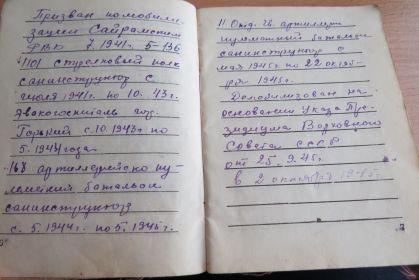 Призван по мобили-
зации Сайрамским
РВК 7.1941г. 5-136
1101 стрелковый полк
санинструктор с
июля 1941г. по 10.43г.
Эвакогоспиталь гор.
Горький с.10.1943г по
5.1944года.
168 артиллерийско пу-
леметный баталион
санинструктор
с. 5.1944г. по 5.1945г.
11 Отд. гв. артиллер
пулеметный батальон
санинструктор с
мая 1945г по 22 октяб-
ря 1945г.
Демобилизован на
основании Указа Пре-
зидиума Верховного
Совета СССР
от 25.9.45г.
в 2 октября 1945г.